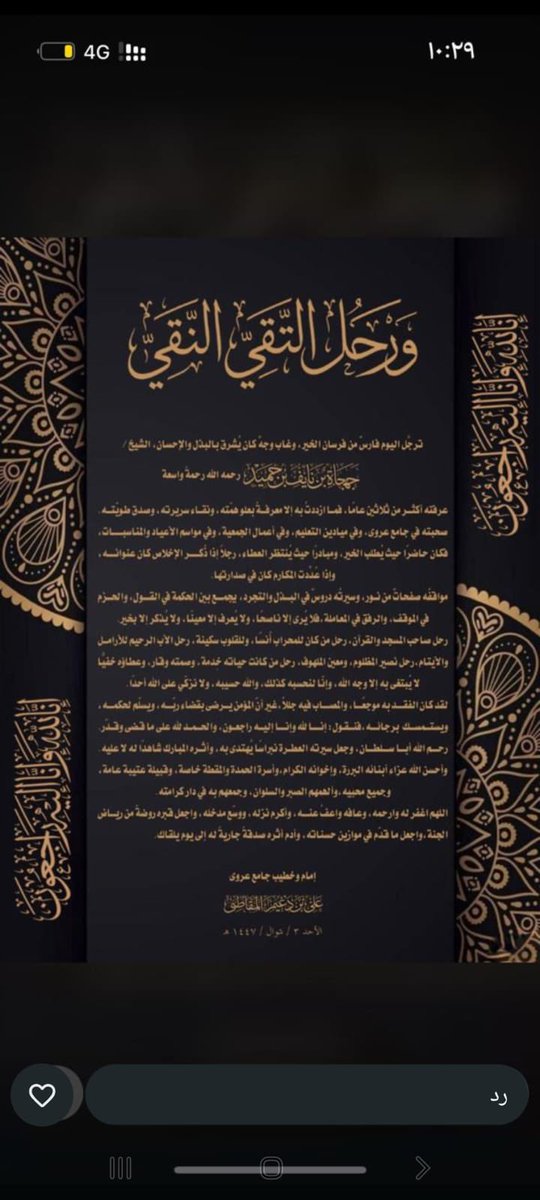 ١٠:٢٩
4G
وَرَحَلَ التَّقِيُّ النَّقِيُّ
إنا لله وإنا إليه راجعون
ترجّل اليوم فارسٌ من فرسان الخير، وغاب وجهٌ كان يُشرق بالبذل والإحسان، الشيخ /
بن نايف بن حميد رحمه الله رحمةً واسعة
عرفته أكثر من ثلاثين عامًا، فما ازددتُ به إلا معرفةً بعلو همّته، ونقاء سريرته، وصدق طويّته.
صحبته في جامع عروى، وفي ميادين التعليم، وفي أعمال الجمعية، وفي مواسم الأعياد والمناسبات،
فكان حاضرًا حيث يُطلب الخير، ومبادرًا حيث يُنتظر العطاء، رجلًا إذا ذُكر الإخلاص كان عنوانه،
وإذا عُدّدت المكارم كان في صدارتها.
مواقفُه صفحاتٌ من نور، وسيرتُه دروسٌ في البذل والتجرد، يجمع بين الحكمة في القول، والحزم
في الموقف، والرفق في المعاملة، فلا يُرى إلا ناصحًا، ولا يُعرف إلا معينًا، ولا يُذكر إلا بخير.
رحل صاحب المسجد والقرآن، رحل من كان للمحراب أُنسًا، وللقلوب سكينة، رحل الأب الرحيم للأرامل
والأيتام، رحل نصير المظلوم، ومعين الملهوف، رحل من كانت حياته خدمة، وصمته وقار، وعطاؤه خفيًّا
لا يبتغي به إلا وجه الله، وإنّا لنحسبه كذلك، والله حسيبه، ولا نزكّي على الله أحدًا.
لقد كان الفقد به موجعًا، والمصاب فيه جللًا، غير أنّ المؤمن يرضى بقضاء ربه، ويسلّم لحكمه،
ويستمسك برجائه، فنقول: إنا لله وإنا إليه راجعون، والحمد لله على ما قضى وقدّر
رحم الله أبا سلطان، وجعل سيرته العطرة نبراسًا يُهتدى به، وأثره المبارك شاهدًا له لا عليه.
وأحسن الله عزاء أبنائه البررة، وإخوانه الكرام، وأسرة الحمدة والمقطة خاصة، وقبيلة عتيبة عامة،
وجميع محبيه، وألهمهم الصبر والسلوان، وجمعهم به في دار كرامته.
اللهم اغفر له وارحمه، وعافه واعفُ عنه، وأكرم نزله، ووسّع مدخله، واجعل قبره روضةً من رياض
الجنة، واجعل ما قدّم في موازين حسناته، وأدم أثره صدقةً جاريةً له إلى يوم يلقاك.
إمام وخطيب جامع عروى
علي بن دغيم المقاطي
الأحد ٣ / شوال / ١٤٤٧ هـ
إنا لله وإنا إليه راجعون
رد